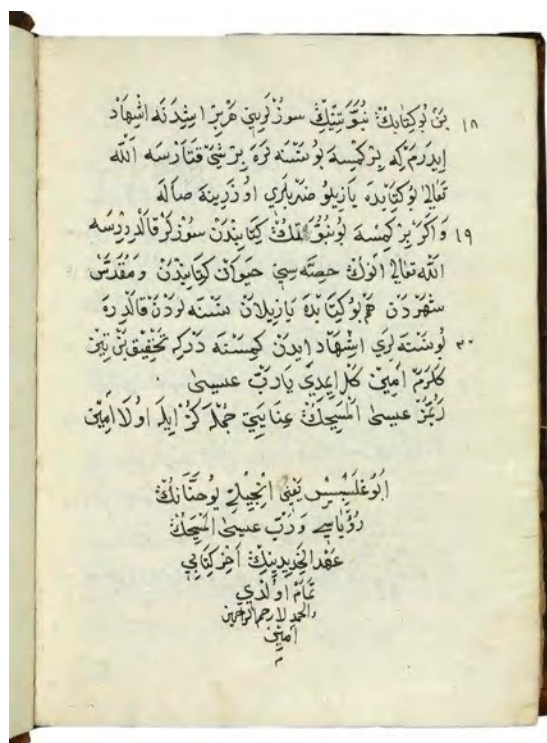 ١٨ بن بو كتابك نبوتينك سوزلريني هر بر اشيدنه اشهاد
ايدرم كه بر كمسه بو نسنه لره بر شي قتارسه الله
تعالى بو كتابده يازيلو ضربلري اوزرينه صاله
١٩ و اكر بر كمسه بو نبوتك كتابندن سوزلر قالدررسه
الله تعالى انوك حصه سني حيوان كتابندن و مقدس
شهردن هم بو كتابده يازيلان نسنه لردن قالدره
٢٠ بو نسنه لري اشهاد ايدن كمسنه در كه تحقيق بن تيز
كلرم امين كل ايمدي يا رب عيسى
ربمز عيسى المسيحك عنايتي جمله كز ايله اولا امين
ابوغلبسيس يعنى انجيلي يوحنانك
رؤياسي و رب عيسى المسيحك
عقد الجديدينك اخر كتابي
تمام اولدي
والحمد لارحم الراحمين
امين
م